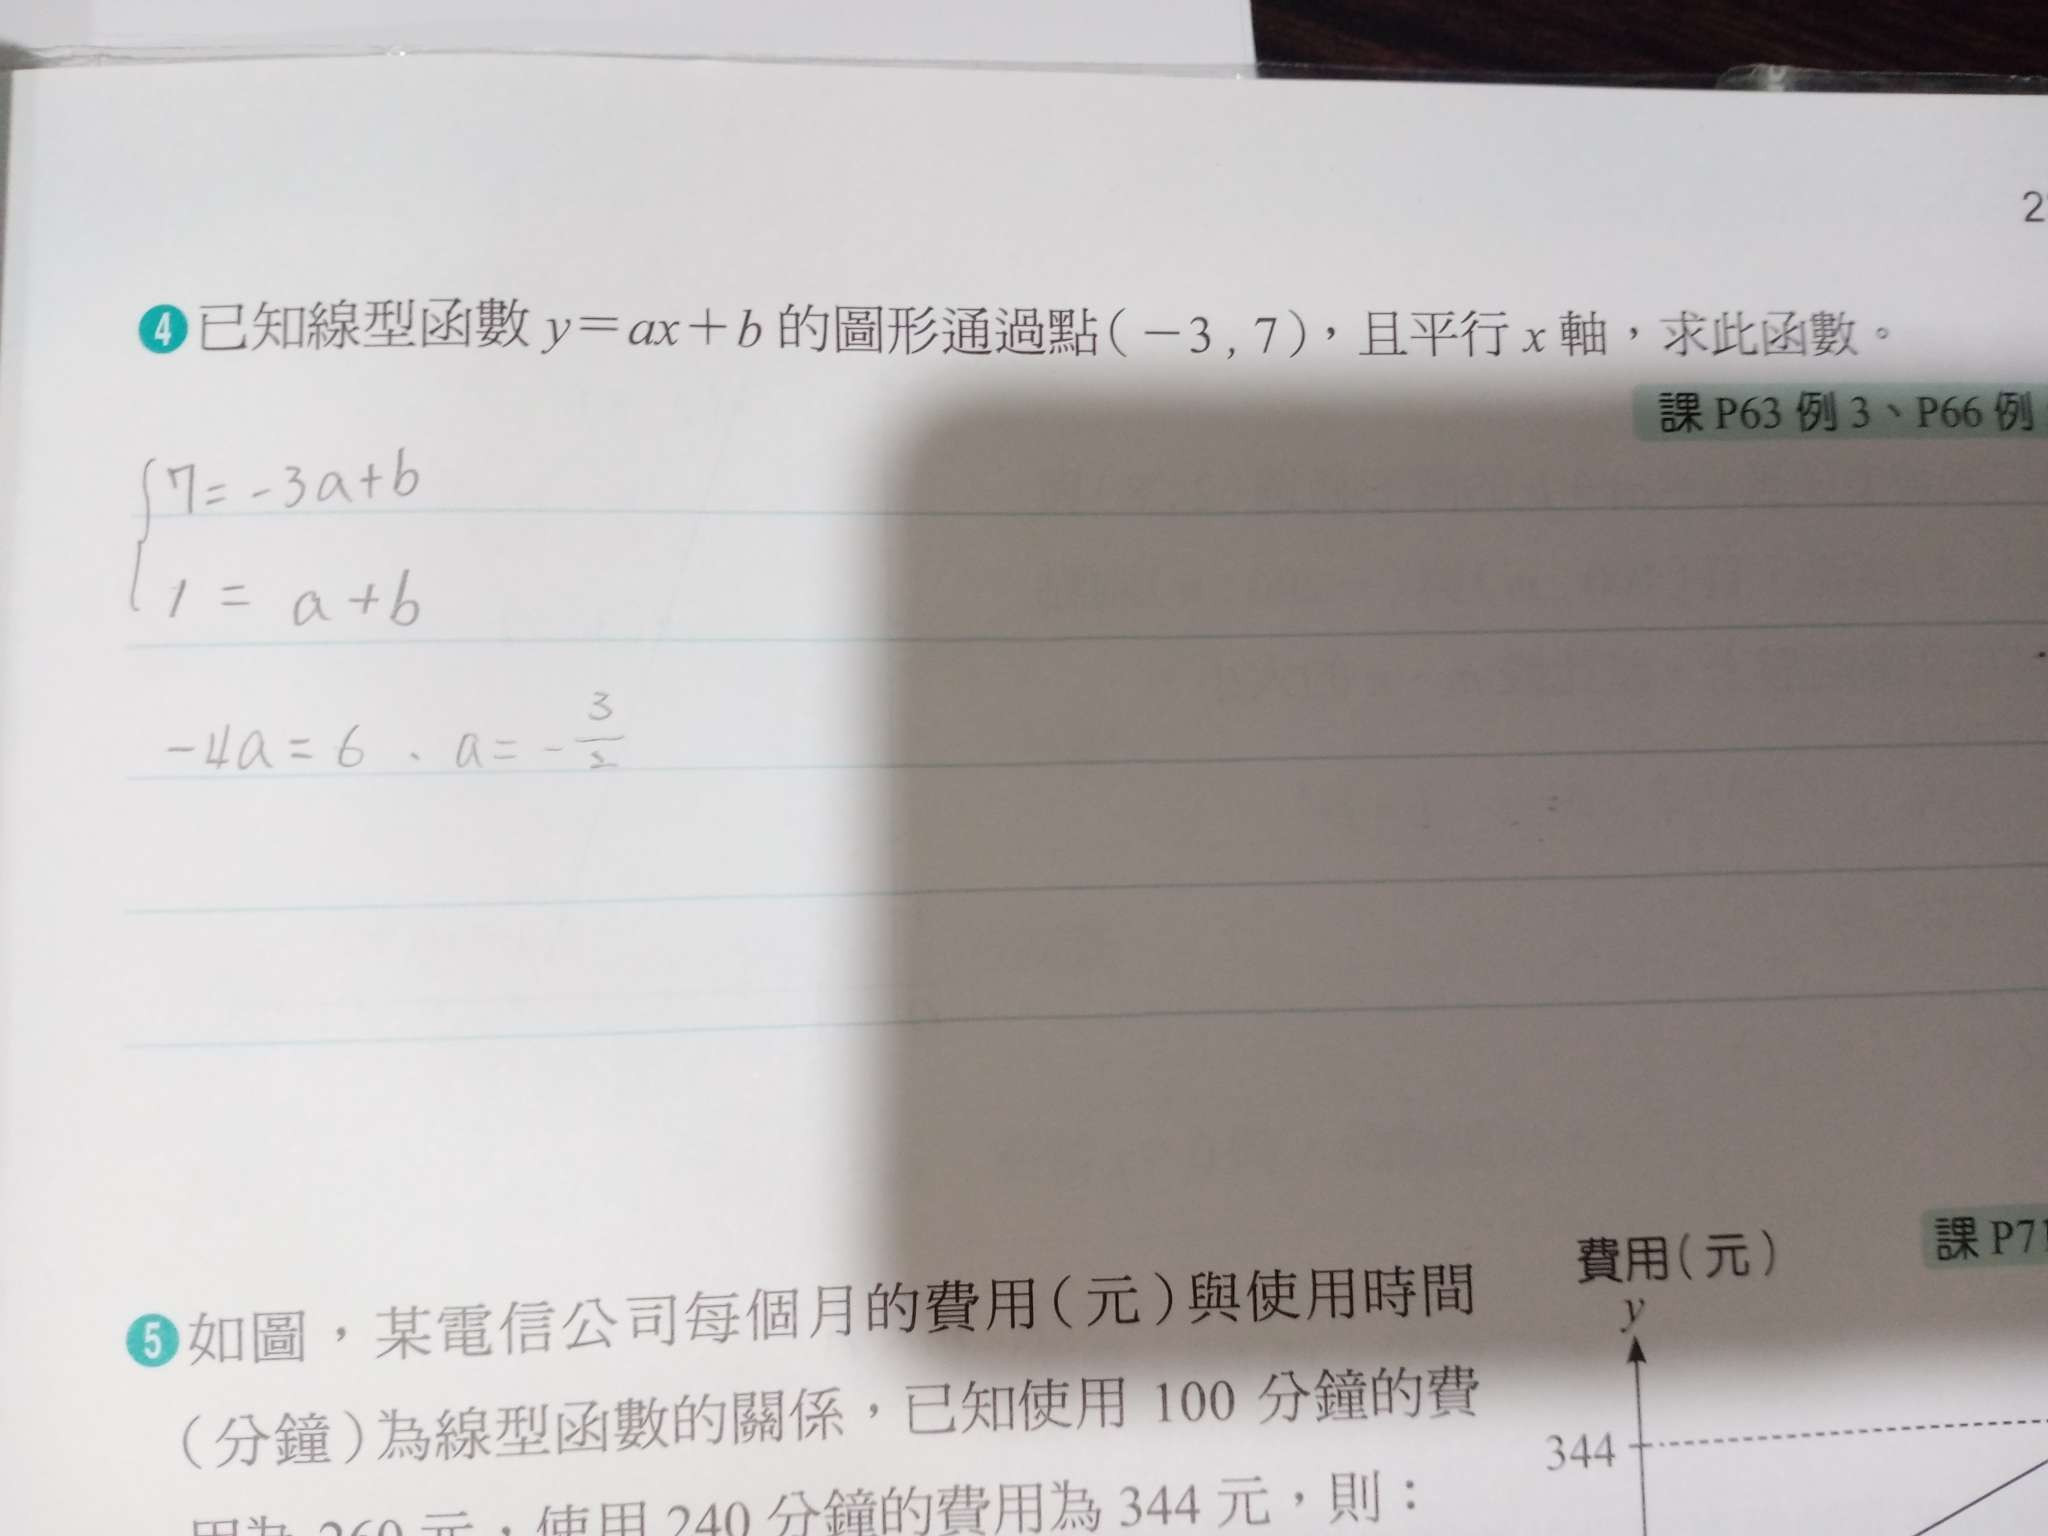 2
④已知線型函數 y=ax+b 的圖形通過點(-3,7),且平行 x 軸,求此函數。
課 P63 例 3、P66 例
7=-3a+b
1=a+b
-4a=6、a=-3/2
課 P71
費用(元)
y
⑤如圖,某電信公司每個月的費用(元)與使用時間
(分鐘)為線型函數的關係,已知使用 100 分鐘的費
344
用為 260 元,使用 240 分鐘的費用為 344 元,則: